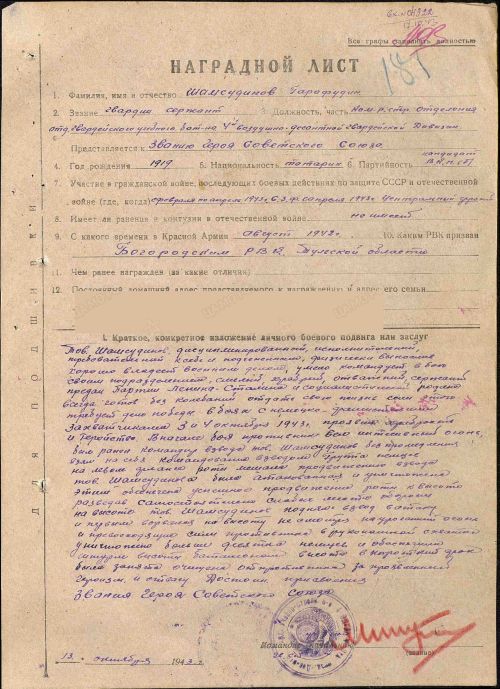 Все графы заполнять полностью
НАГРАДНОЙ ЛИСТ
1. Фамилия, имя и отчество Шамсудинов Гарафудин
2. Звание гвардии сержант 3. Должность, часть ком-р стр. отделения
отд. гвардейского учебного бат-на 4й воздушно-десантной гвардейской дивизии
Представляется к Званию Героя Советского Союза
кандидат
4. Год рождения 1919 5. Национальность татарин 6. Партийность В.К.П.(б)
7. Участие в гражданской войне, последующих боевых действиях по защите СССР и отечественной
войне (где, когда) с февраля по апрель 1943 г. С.З.ф. с апреля 1943 г. Центральный фронт
8. Имеет ли ранения и контузии в отечественной войне не имеет
9. С какого времени в Красной Армии август 1942 г. 10. Каким РВК призван
Богородским Р.В.К. Тульской области
11. Чем ранее награжден (за какие отличия)
12. Постоянный домашний адрес представляемого к награждению и адрес его семьи
I. Краткое, конкретное изложение личного боевого подвига или заслуг
Тов. Шамсудинов, дисциплинированный, исполнительный,
требовательный к себе и подчиненным, физически вынослив
хорошо владеет военным делом, умело командует в бою
своим подразделением, смелый, храбрый, отважный сержант
предан Партии Ленина-Сталина и социалистической родине
всегда готов без колебаний отдать свою жизнь если этого
требует дело победы в боях с немецко-фашистскими
захватчиками 3 и 4 октября 1943 г. проявил храбрость
и геройство. В начале боя противник вел интенсивный огонь,
был ранен командир взвода тов. Шамсудинов без промедления
взял на себя командование взводом группа немцев
на левом фланге роты мешала продвижению взвода
тов. Шамсудинова была атакована и уничтожена
этим обеспечил успешное продвижение роты к высоте
разведав самостоятельно слабые места обороны
на высоте тов. Шамсудинов поднял взвод в атаку
и первым ворвался на высоту не смотря на ураганный огонь
и превосходящие силы противника в рукопашной схватке
уничтожено больше десятка немцев обеспечил
штурм высоты батальоном высота в короткий срок
была занята и очищена от противника за проявленный
героизм и отвагу достоин присвоения
Звания Героя Советского Союза
13. октября 1943 г.
(звание)
ДЛЯ ПОДШИВКИ